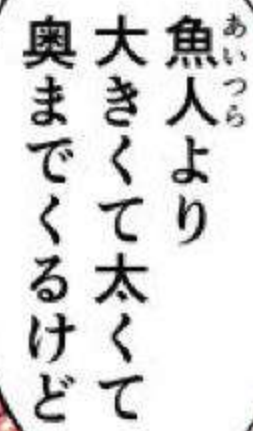 魚人より
あいつら
大きくて太くて
奥までくるけど